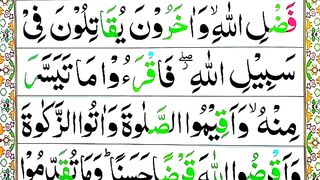 فَضْلِ اللّٰهِ ۙ وَاٰخَرُوْنَ يُقَاتِلُوْنَ فِیْ
سَبِيْلِ اللّٰهِ ۖ فَاقْرَءُوْا مَا تَيَسَّرَ
مِنْهُ ۙ وَاَقِيْمُوا الصَّلٰوةَ وَاٰتُوا الزَّكٰوةَ
وَاَقْرِضُوا اللّٰهَ قَرْضًا حَسَنًا ؕ وَمَا تُقَدِّمُوْا